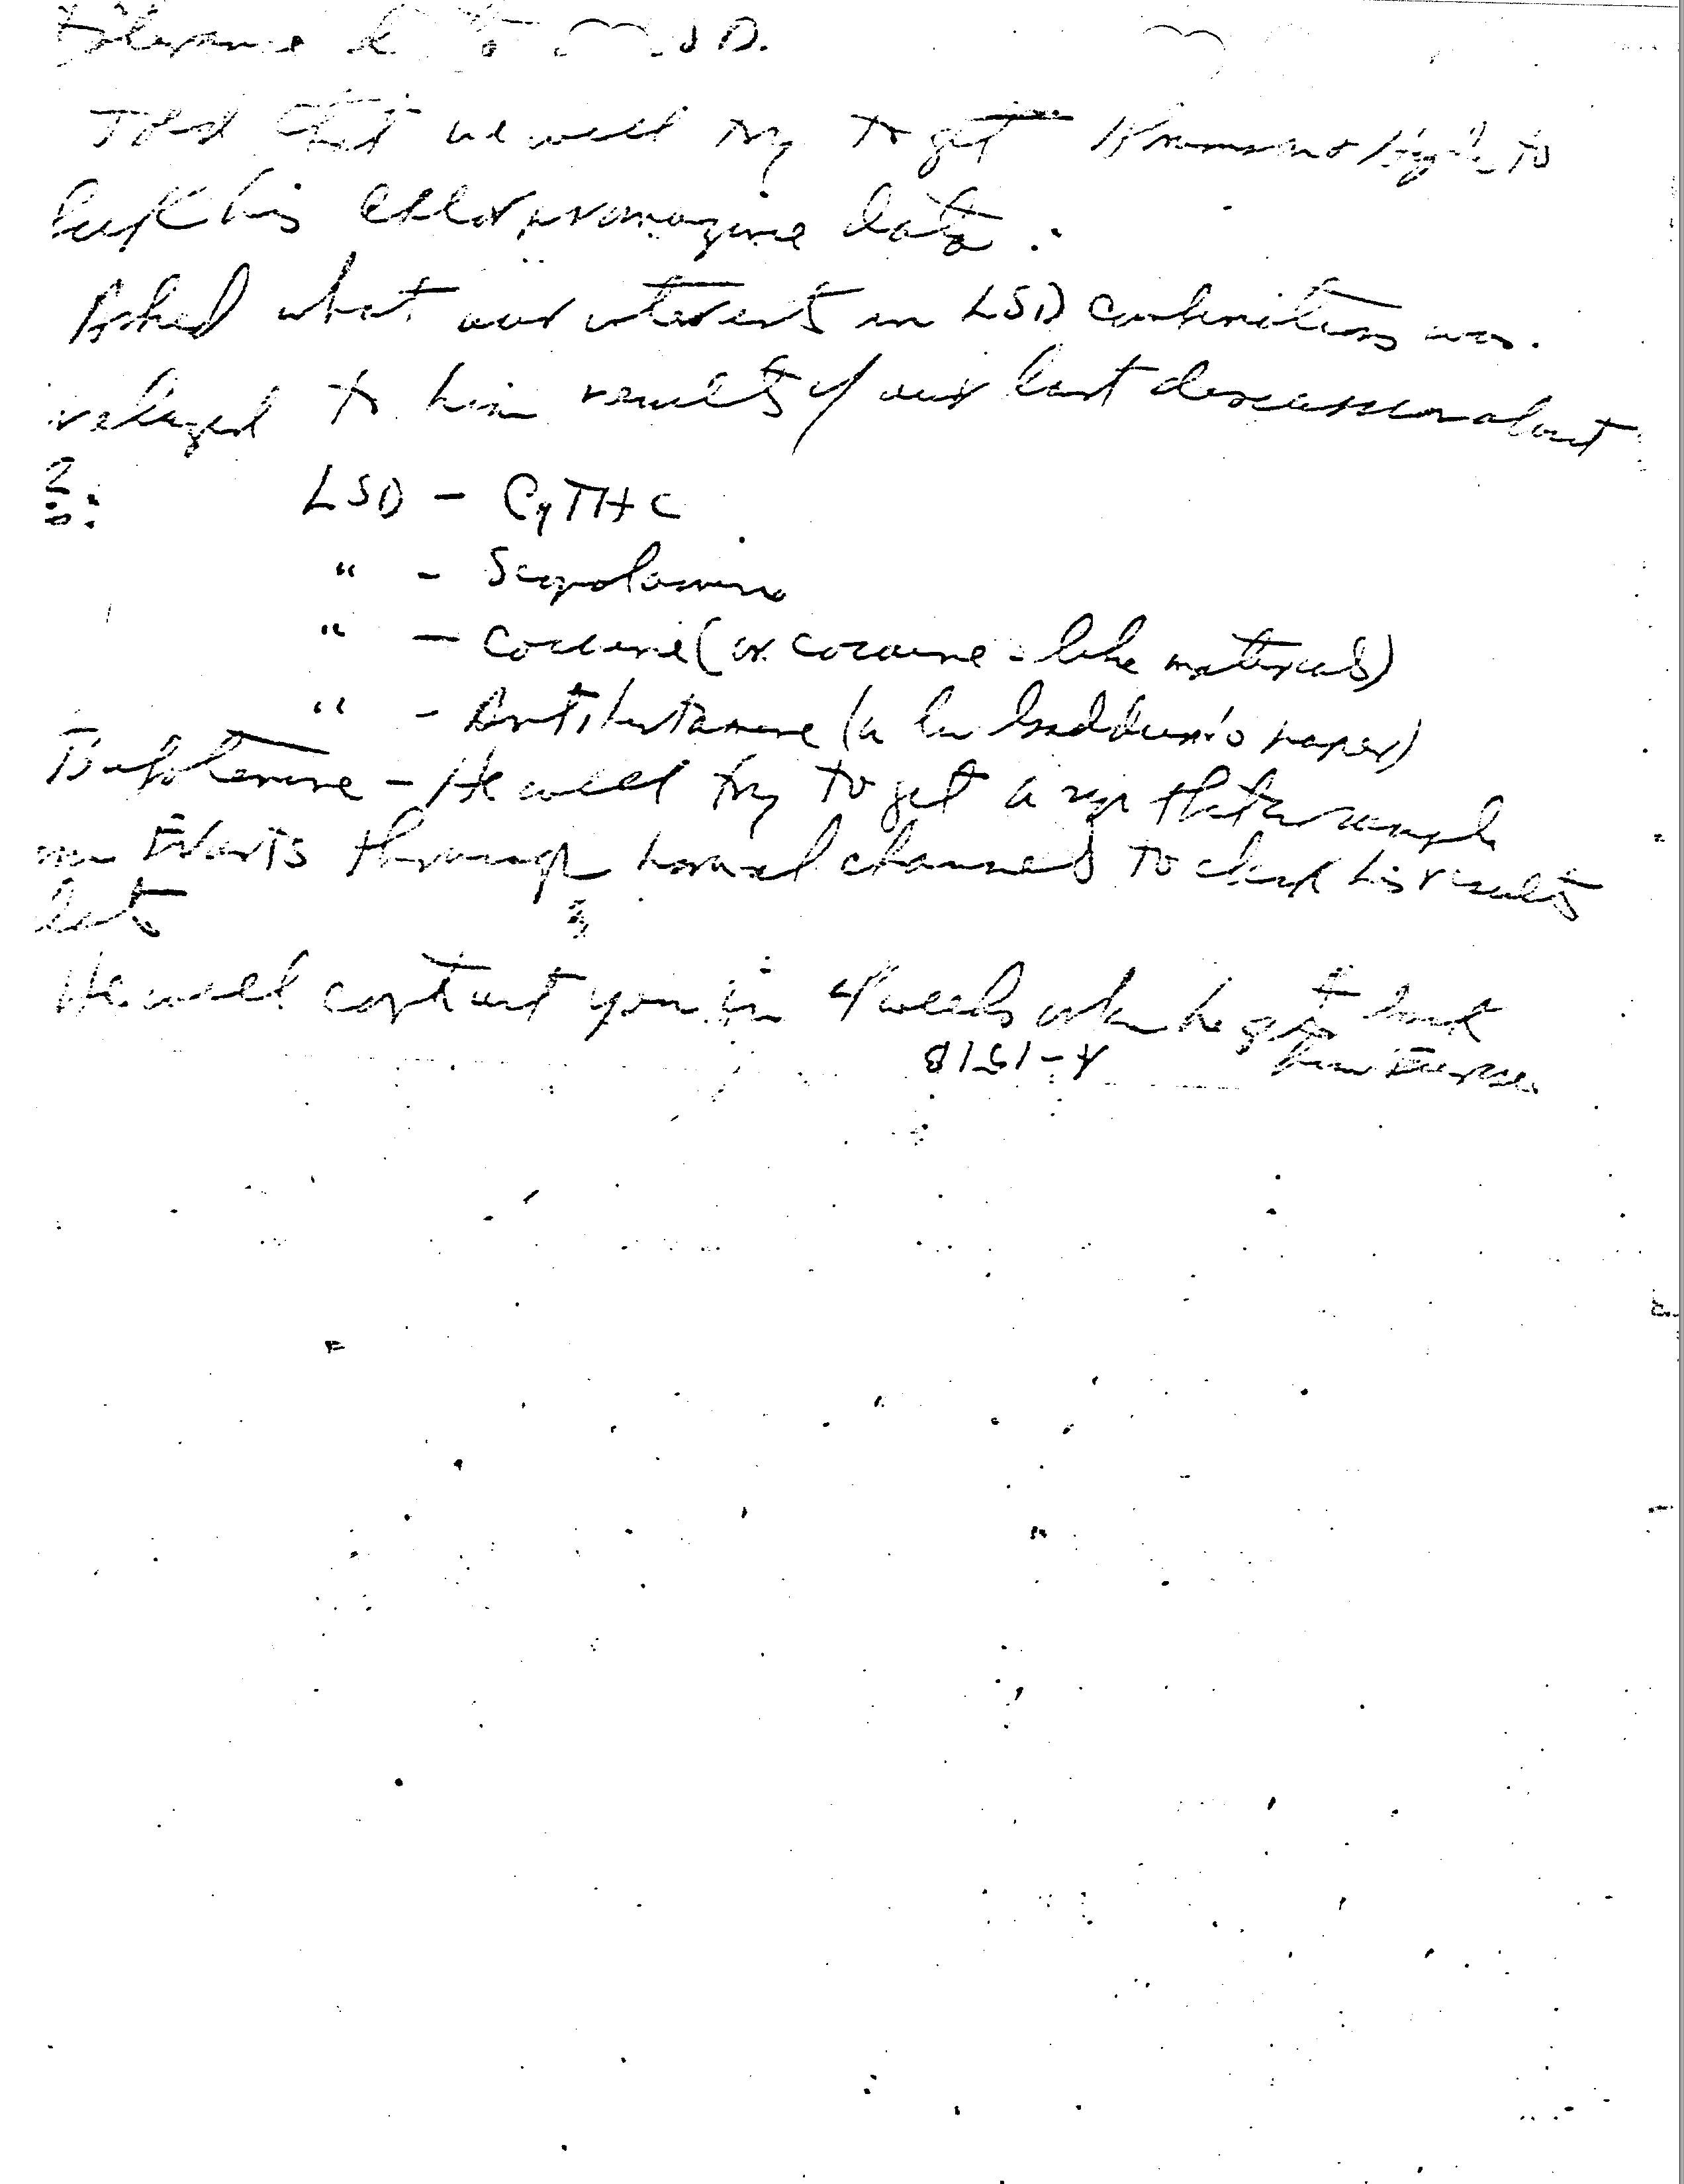 Tolerance to LSD.
Told that we will try to get to
his chlorpromazine data.
Asked what our interests in LSD combinations was.
relayed to him results of our last discussion about
LSD - C9THC
" - Scopolamine
" - Cocaine (or cocaine-like materials)
" - Antihistamine (a la Gaddum's paper)
Bufotenine - He will try to get a synthetic sample
Evarts through normal channels to check his results
He will contact you in 4 weeks when he gets back
from Europe.